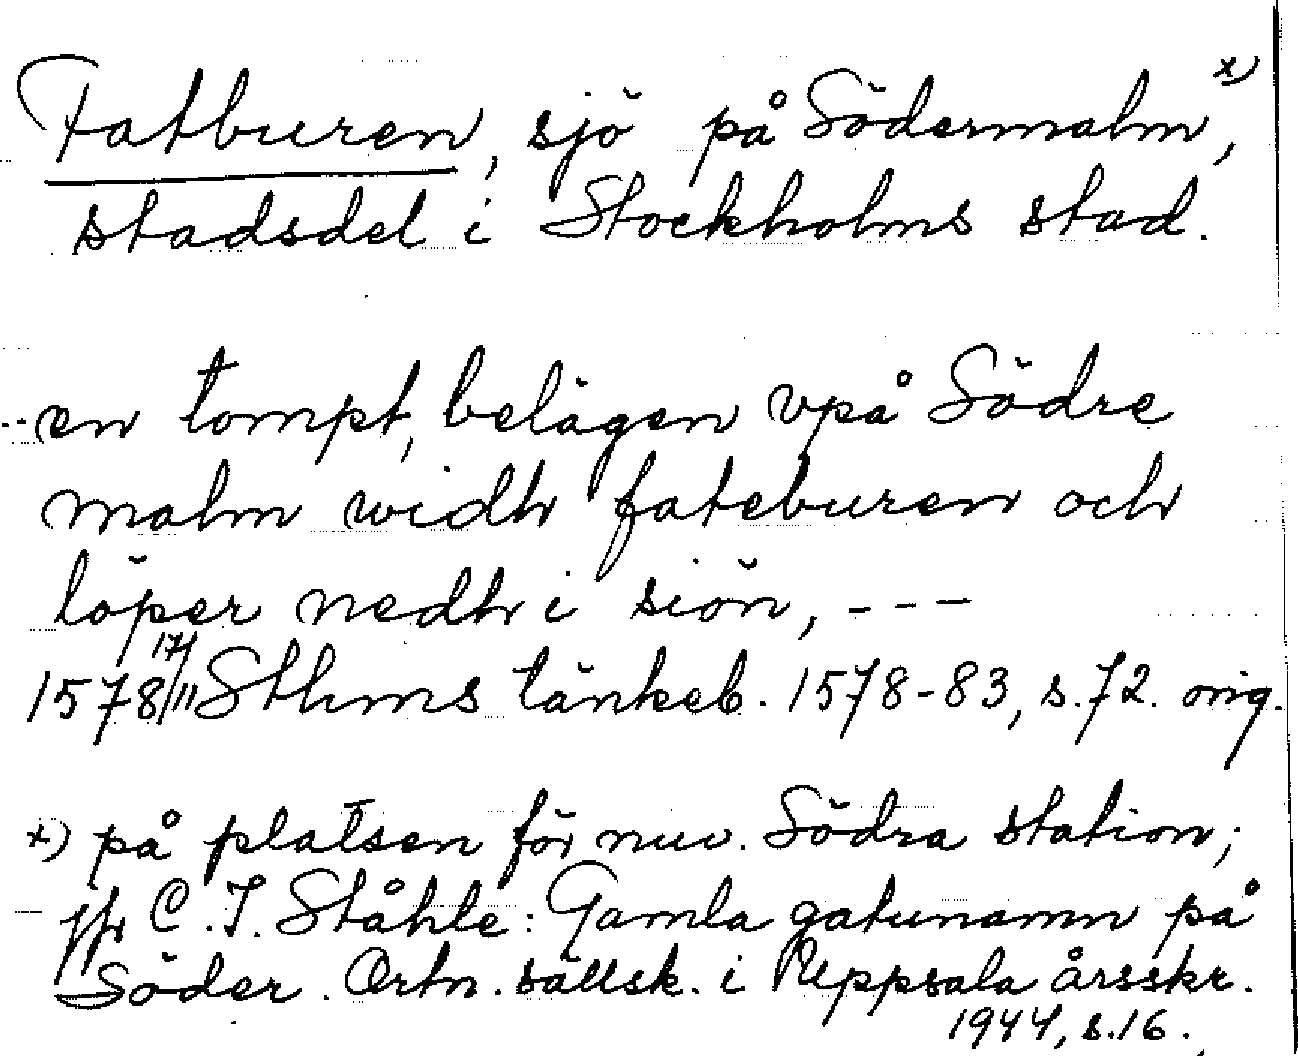 Fatburen, sjö på Södermalm, x)
stadsdel i Stockholms stad.
en tompt, belägen vpå Södre
malm widh fateburen och
löper nedh i siön, ---
1578 17/11 Sthms tänkeb. 1578-83, s. 72. orig.
x) på platsen för nuv. Södra station;
jfr C. I. Ståhle: Gamla gatunamn på
Söder. Ortn. sällsk. i Uppsala årsskr.
1944, s. 16.